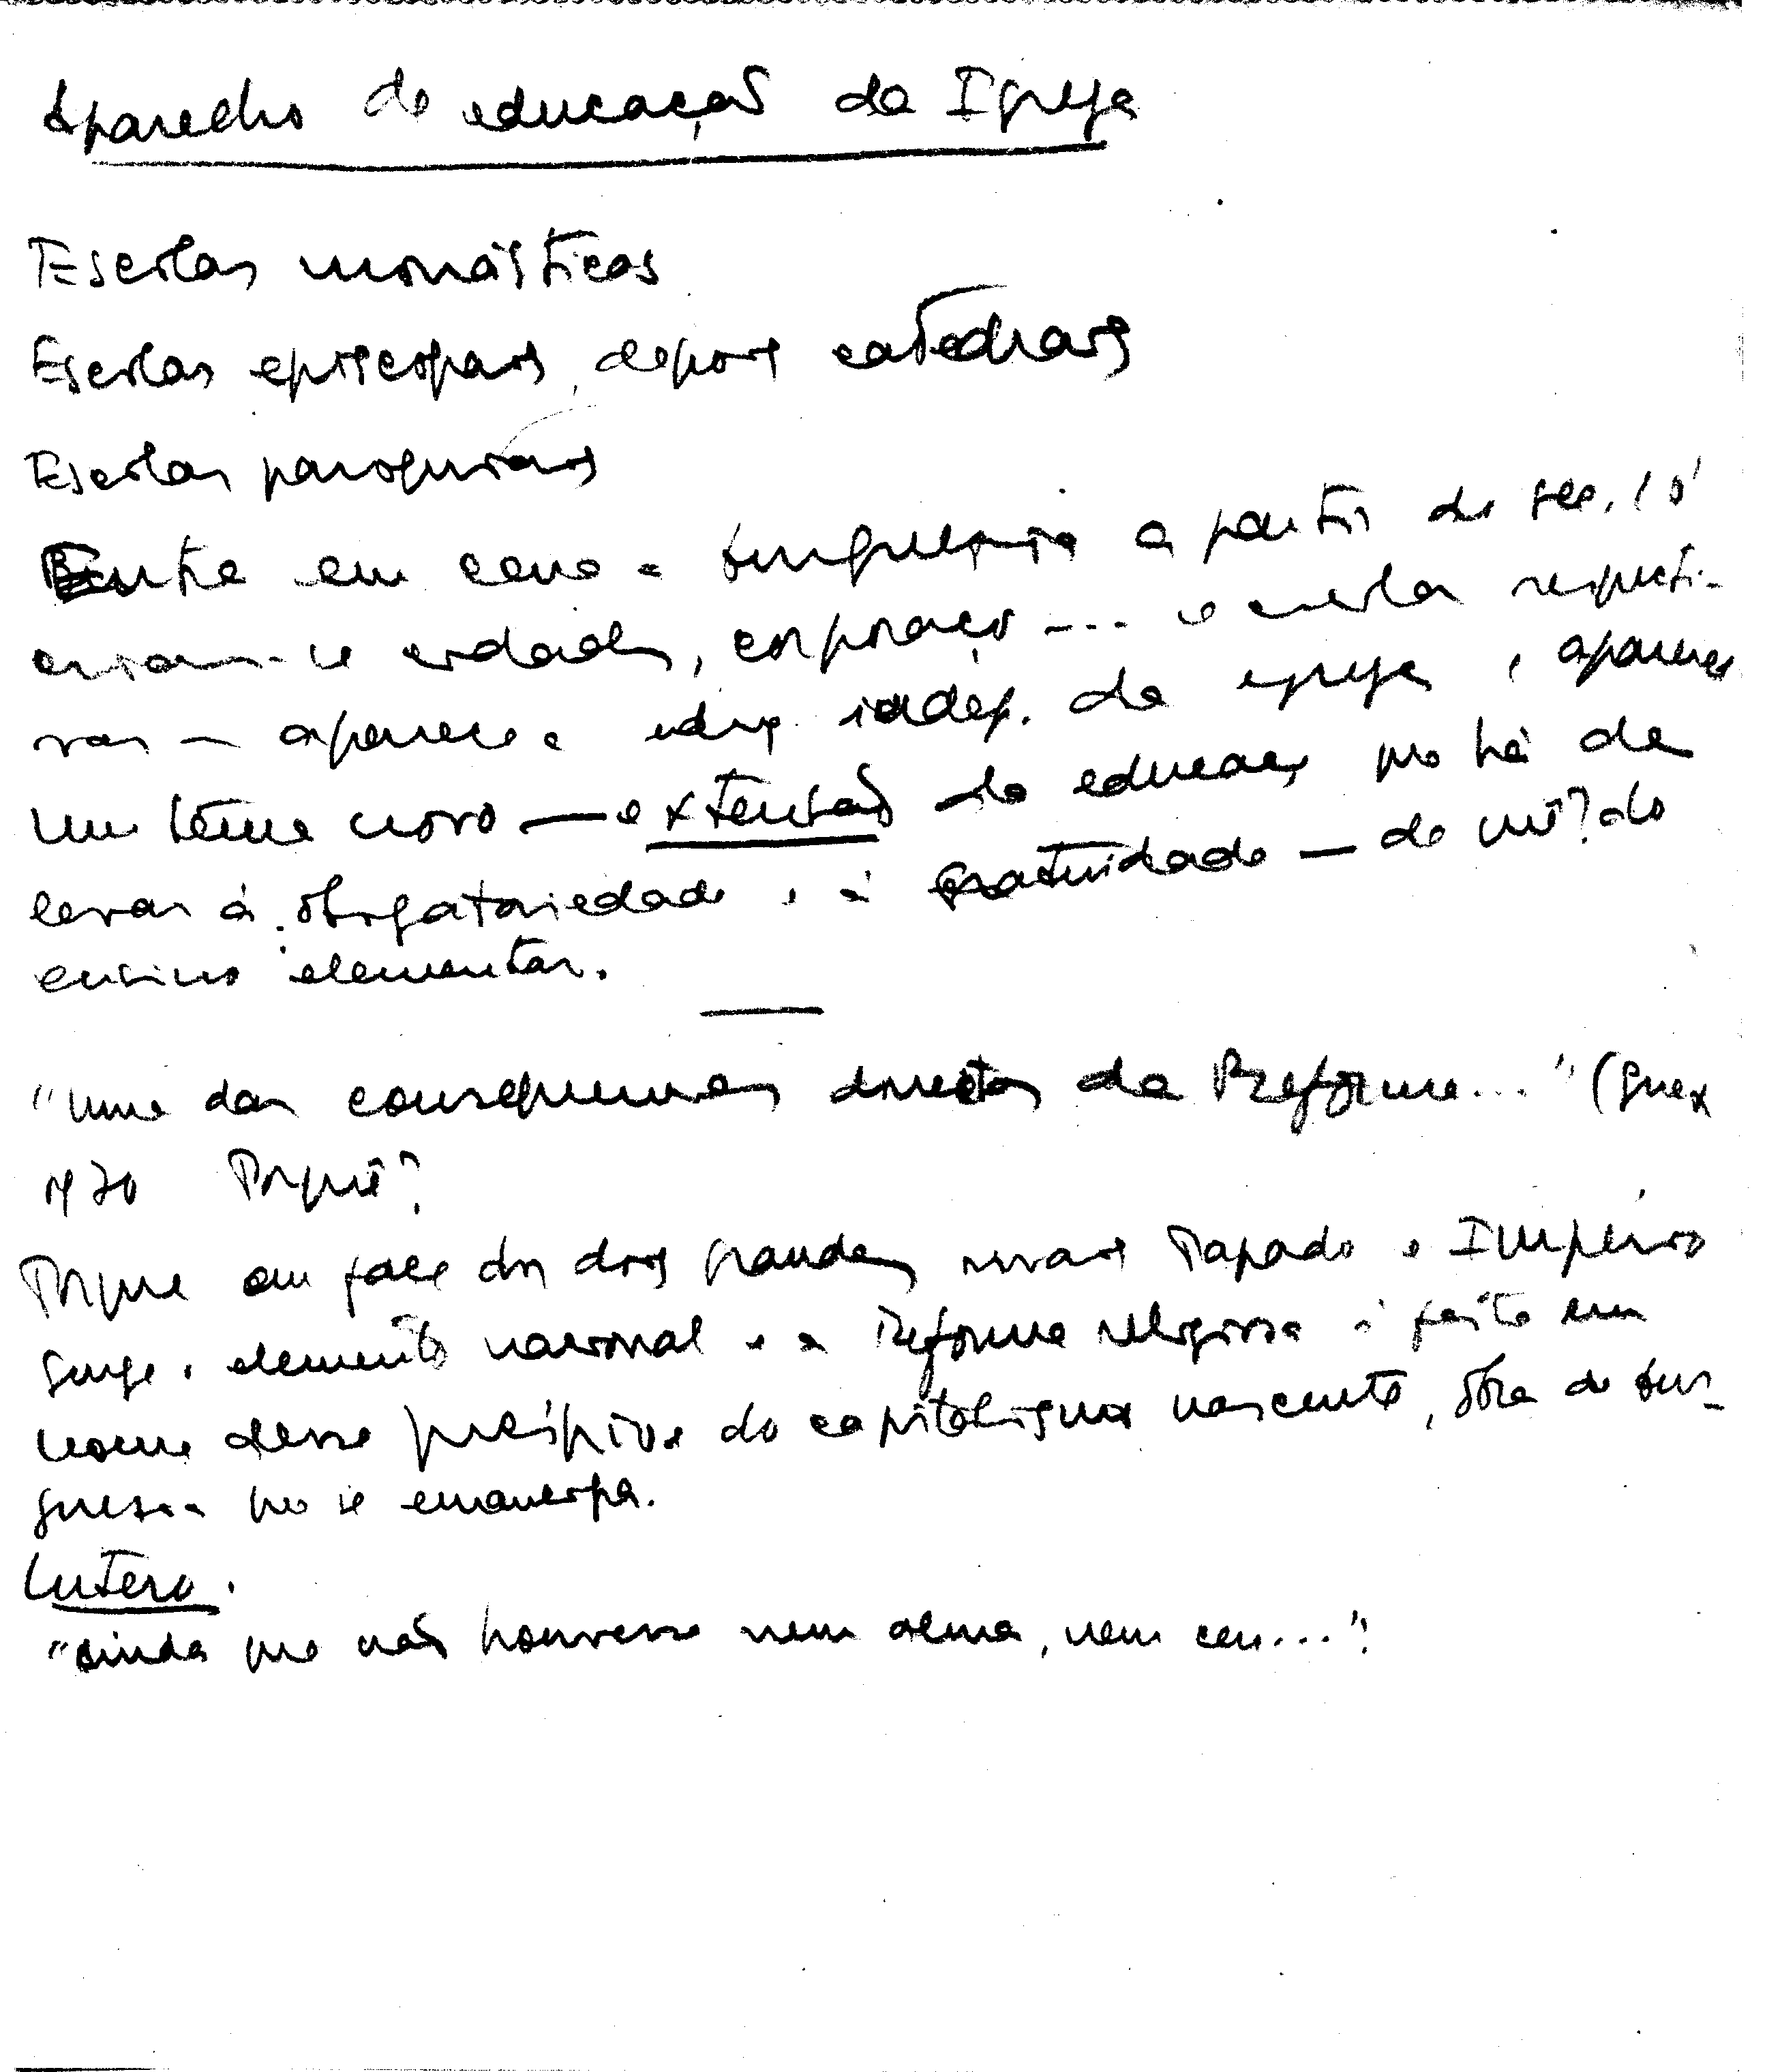 Aparelho de educação da Igreja
Escolas monásticas
Escolas episcopais, depois catedrais
Escolas paroquiais
Entra em cena a burguesia a partir do sec. 10
criam-se cidades, corporações --- e escolas respecti-
vas — aparece a educ. indep. da igreja e aparece
um tema novo — a extensão da educação que há de
levar à obrigatoriedade e à gratuidade — de quê? do
ensino elementar.
"Uma das consequencias directas da Reforma..." (Guex
Porquê?
Porque em face dos dois grandes rivais Papado e Império
surge o elemento nacional e a Reforma religiosa é feita em
nome desse do capitalismo nascente, obra da bur-
guesia que se emancipa.
Lutero.
"ainda que não houvesse nem alma, nem ceu..."